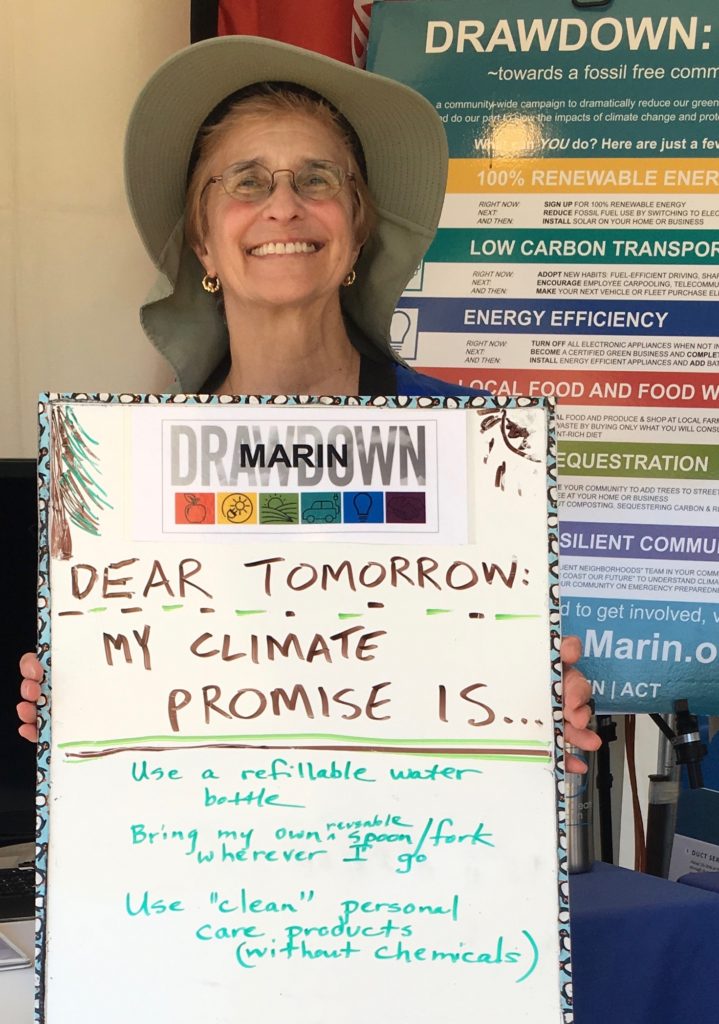 DRAWDOWN:
~towards a fossil free comm
a community-wide campaign to dramatically reduce our green
do our part to slow the impacts of climate change and prot
What can YOU do? Here are just a few
100% RENEWABLE ENER
RIGHT NOW: SIGN UP FOR 100% RENEWABLE ENERGY
NEXT: REDUCE FOSSIL FUEL USE BY SWITCHING TO ELEC
AND THEN: INSTALL SOLAR ON YOUR HOME OR BUSINESS
LOW CARBON TRANSPOR
RIGHT NOW: ADOPT NEW HABITS: FUEL-EFFICIENT DRIVING, SHA
NEXT: ENCOURAGE EMPLOYEE CARPOOLING, TELECOMMU
AND THEN: MAKE YOUR NEXT VEHICLE OR FLEET PURCHASE EL
ENERGY EFFICIENCY
RIGHT NOW: TURN OFF ALL ELECTRONIC APPLIANCES WHEN NOT IN
NEXT: BECOME A CERTIFIED GREEN BUSINESS AND COMPLET
AND THEN: INSTALL ENERGY EFFICIENT APPLIANCES AND ADD BAT
LOCAL FOOD AND FOOD W
AL FOOD AND PRODUCE & SHOP AT LOCAL FARM
WASTE BY BUYING ONLY WHAT YOU WILL CONSU
NT-RICH DIET
EQUESTRATION
E YOUR COMMUNITY TO ADD TREES TO STREET
EE AT YOUR HOME OR BUSINESS
T COMPOSTING, SEQUESTERING CARBON & R
SILIENT COMMU
IENT NEIGHBORHOODS" TEAM IN YOUR COMM
COAST OUR FUTURE" TO UNDERSTAND CLIMA
UR COMMUNITY ON EMERGENCY PREPAREDN
d to get involved, v
Marin.o
N | ACT
DRAWDOWN
MARIN
DEAR TOMORROW:
MY CLIMATE
PROMISE IS...
Use a refillable water
bottle
Bring my own reusable spoon/fork
wherever I go
Use "clean" personal
care products
(without chemicals)
DUCT SER